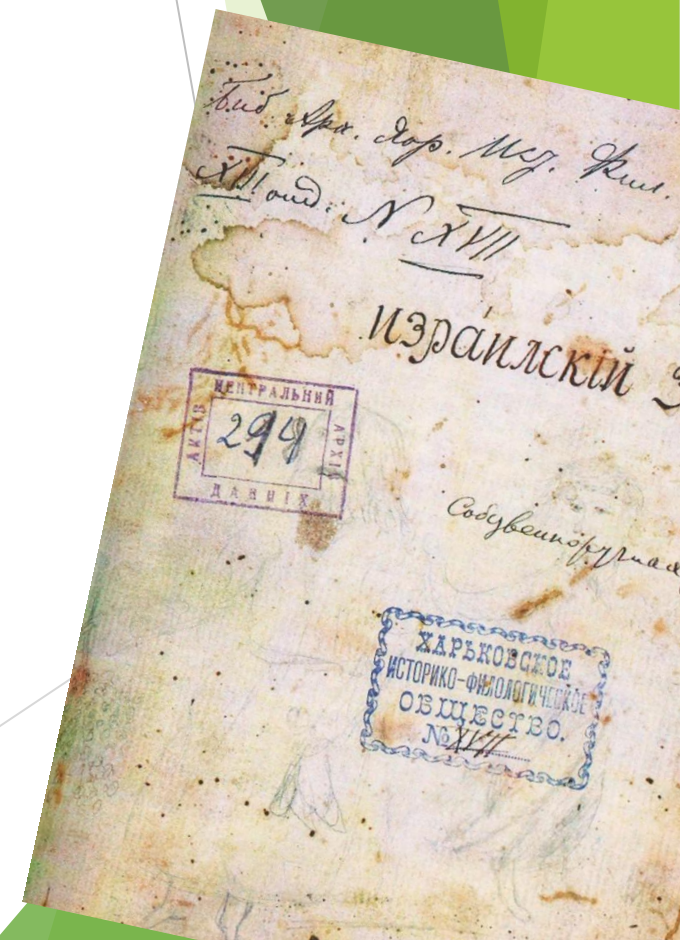 Биб. Арх. Хар. Ист. Фил.
XII отд. N XVII
изра́илскiй З
ЦЕНТРАЛЬНИЙ
АРХІВ
ДАВНІХ
АКТІВ
294
Собственноручная
ХАРЬКОВСКОЕ
ИСТОРИКО-ФИЛОЛОГИЧЕСКОЕ
ОБЩЕСТВО.
№ XVII